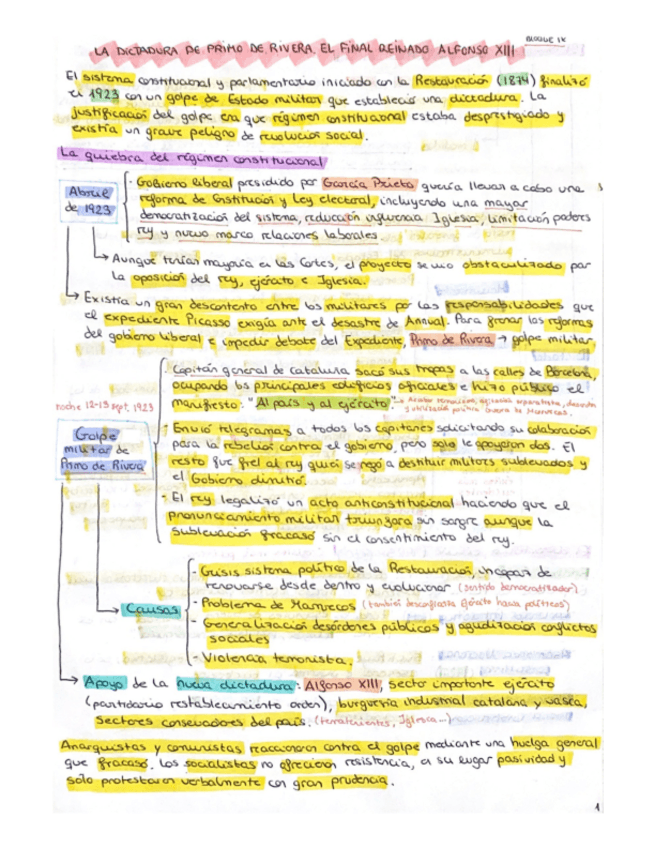 BLOQUE IX
LA DICTADURA DE PRIMO DE RIVERA. EL FINAL REINADO ALFONSO XIII
El sistema constitucional y parlamentario iniciado con la Restauración (1874) finalizó
en 1923 con un golpe de Estado militar que estableció una dictadura. La
justificación del golpe era que régimen constitucional estaba desprestigiado y
existía un grave peligro de revolución social.
La quiebra del régimen constitucional
Abril de 1923
- Gobierno liberal presidido por García Prieto quería llevar a cabo una
reforma de Constitución y Ley electoral, incluyendo una mayor
democratización del sistema, reducción influencia Iglesia, limitación poderes
rey y nuevo marco relaciones laborales.
→ Aunque tenían mayoría en las Cortes, el proyecto se vio obstaculizado por
la oposición del rey, ejército e Iglesia.
→ Existía un gran descontento entre los militares por las responsabilidades que
el expediente Picasso exigía ante el desastre de Annual. Para frenar las reformas
del gobierno liberal e impedir debate del Expediente, Primo de Rivera → golpe militar.
noche 12-13 sept, 1923
Golpe
militar de
Primo de Rivera
- Capitán general de Cataluña sacó sus tropas a las calles de Barcelona,
ocupando los principales edificios oficiales e hizo público el
manifiesto: "Al país y al ejército".
- Envió telegramas a todos los capitanes solicitando su colaboración
para la rebelión contra el gobierno, pero solo le apoyaron dos. El
resto fue fiel al rey quien se negó a destituir militares sublevados y
el Gobierno dimitió.
- El rey legalizó un acto anticonstitucional haciendo que el
pronunciamiento militar triunfara sin sangre aunque la
sublevación fracasó sin el consentimiento del rey.
→ Causas
- Crisis sistema político de la Restauración, incapaz de
renovarse desde dentro y evolucionar (sentido democratizador)
- Problema de Marruecos (también desconfianza ejército hacia políticos)
- Generalización desórdenes públicos y agudización conflictos
sociales
- Violencia terrorista.
→ Apoyo de la nueva dictadura: Alfonso XIII, sector importante ejército
(partidario restablecimiento orden), burguesía industrial catalana y vasca,
sectores conservadores del país. (terratenientes, Iglesia...)
Anarquistas y comunistas reaccionaron contra el golpe mediante una huelga general
que fracasó. Los socialistas no ofrecieron resistencia, en su lugar pasividad y
solo protestaron verbalmente con gran prudencia.
1